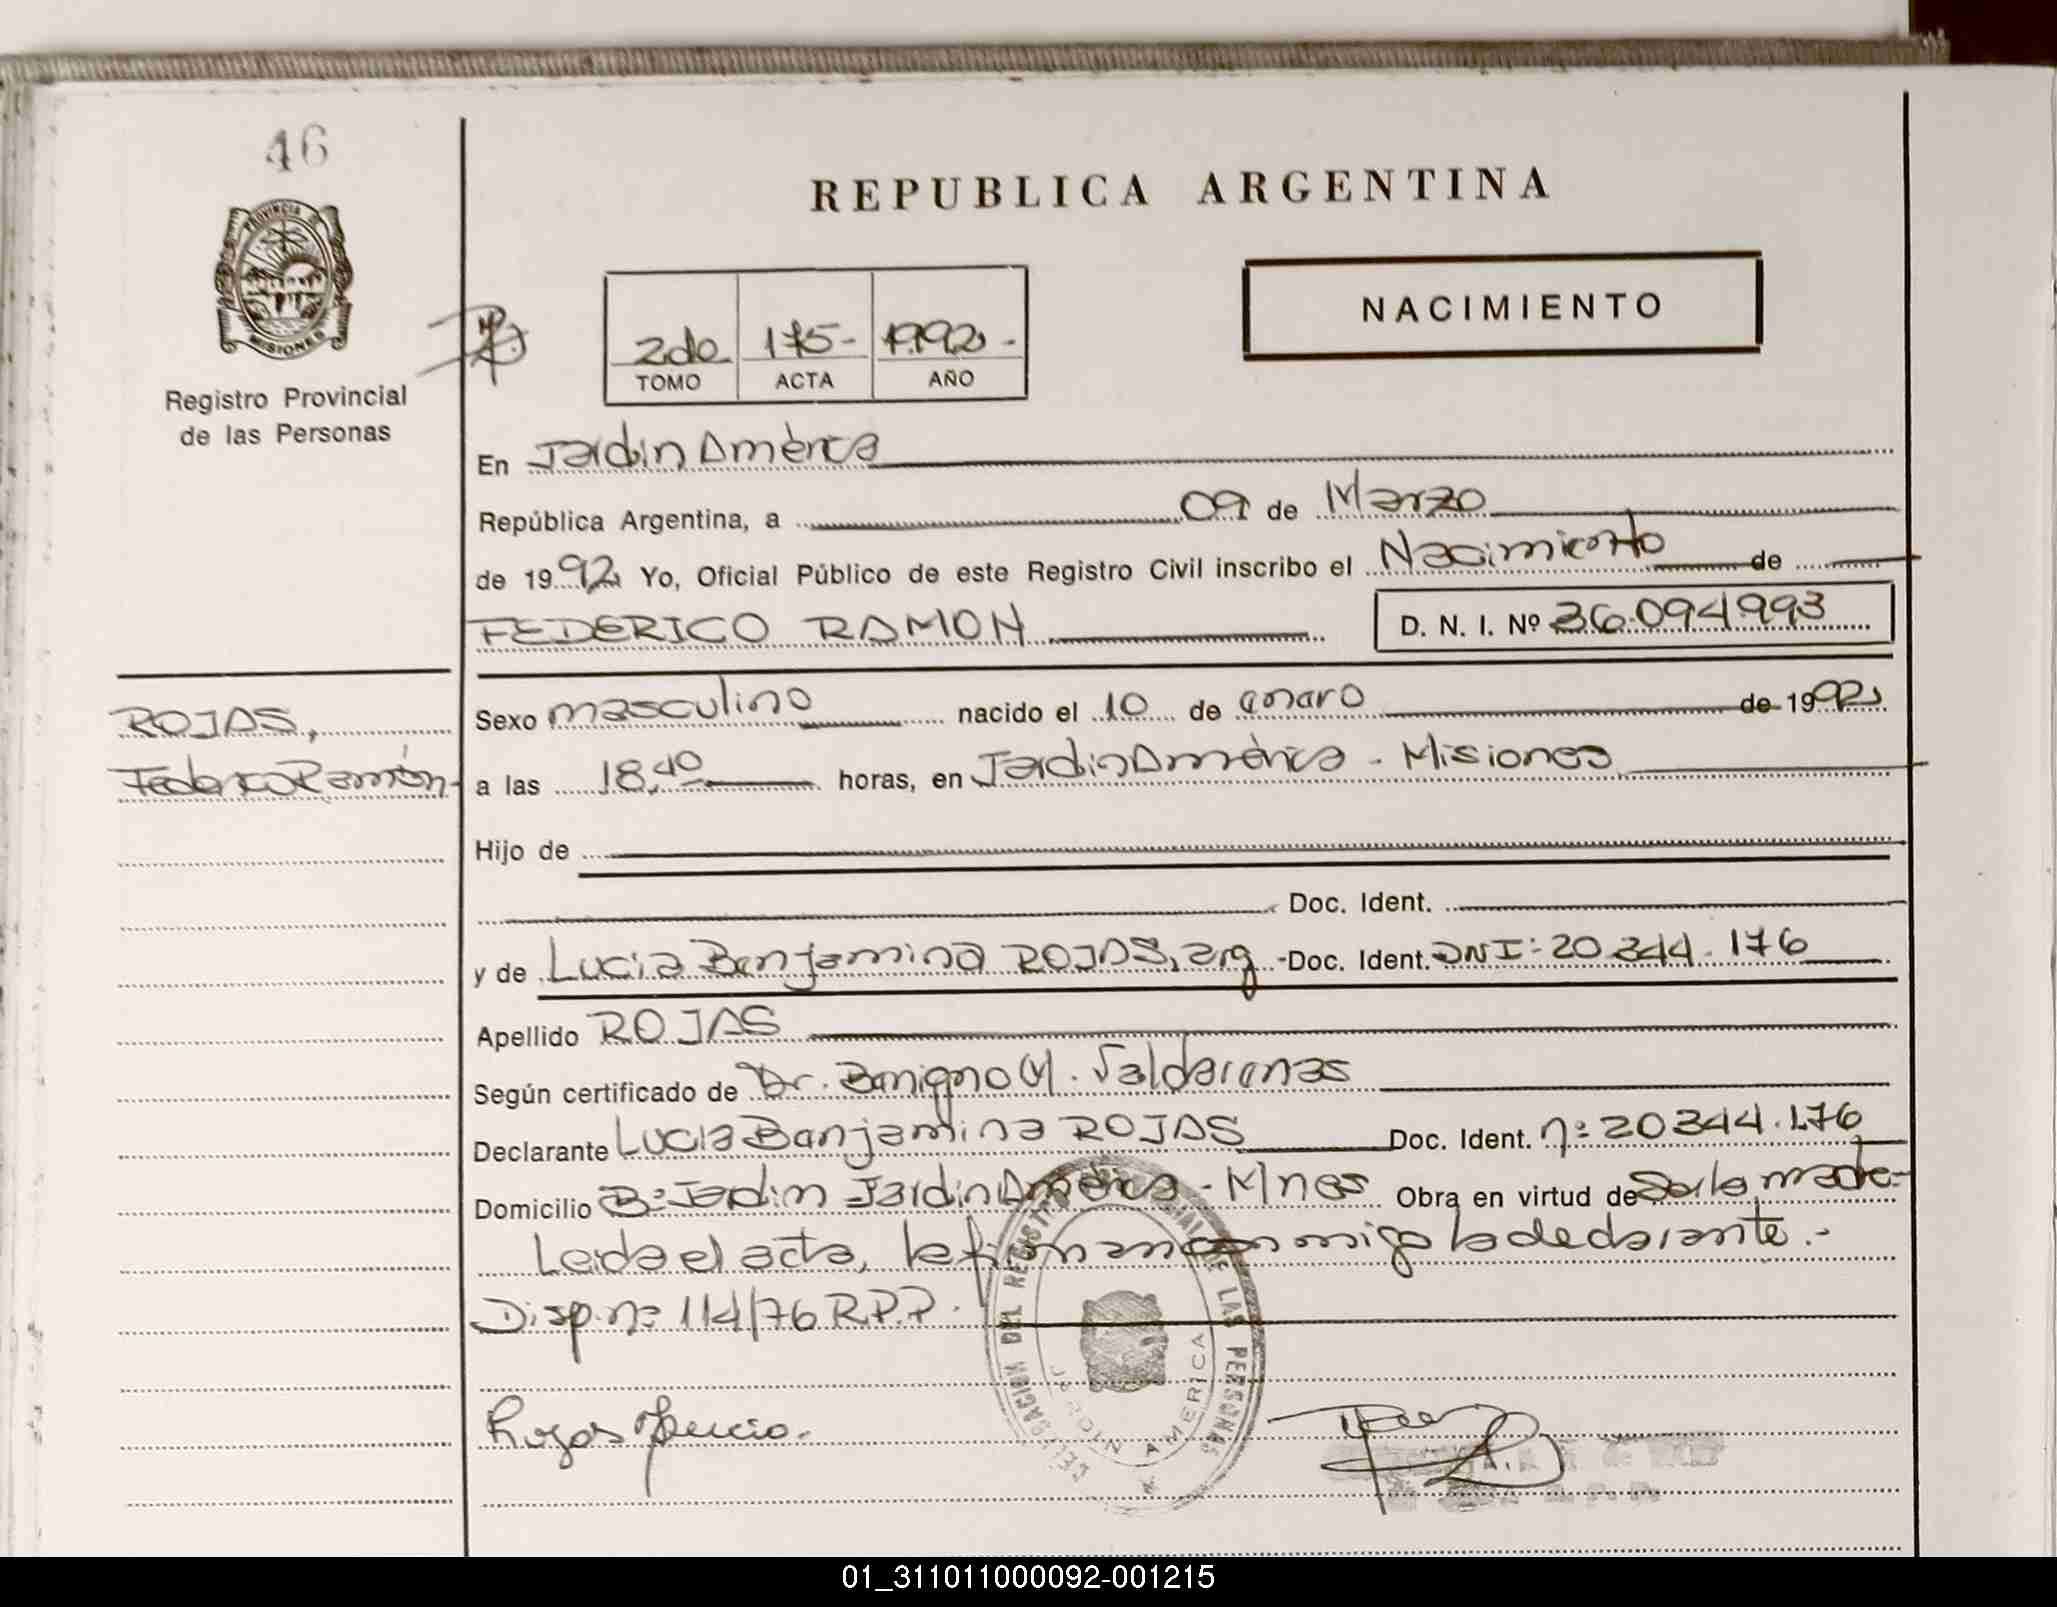 46
PROVINCIA DE
MISIONES
Registro Provincial
de las Personas
REPUBLICA ARGENTINA
NACIMIENTO
2do 175- 1992-
TOMO ACTA AÑO
En Jardin América
República Argentina, a 09 de Marzo
de 1992 Yo, Oficial Público de este Registro Civil inscribo el Nacimiento de
FEDERICO RAMON D. N. I. Nº 36.094.993
ROJAS,
Federico Ramón-
Sexo masculino nacido el 10 de enero de 1992
a las 18,40 horas, en Jardin América - Misiones
Hijo de
Doc. Ident.
y de Lucia Benjamina ROJAS, arg -Doc. Ident. DNI: 20.344.176
Apellido ROJAS
Según certificado de Dr. Benigno M. Valdarenas
Declarante Lucia Benjamina ROJAS Doc. Ident. nº 20344.176
Domicilio Bº Jardin Jardin América - Mnes Obra en virtud de Ser la madre-
Leida el acta, la firman conmigo la declarante.-
Disp. nº 114/76 R.P.P.
DELEGACION DEL REGISTRO PROVINCIAL DE LAS PERSONAS
JARDIN AMERICA
Rojas Lucia.
01_311011000092-001215